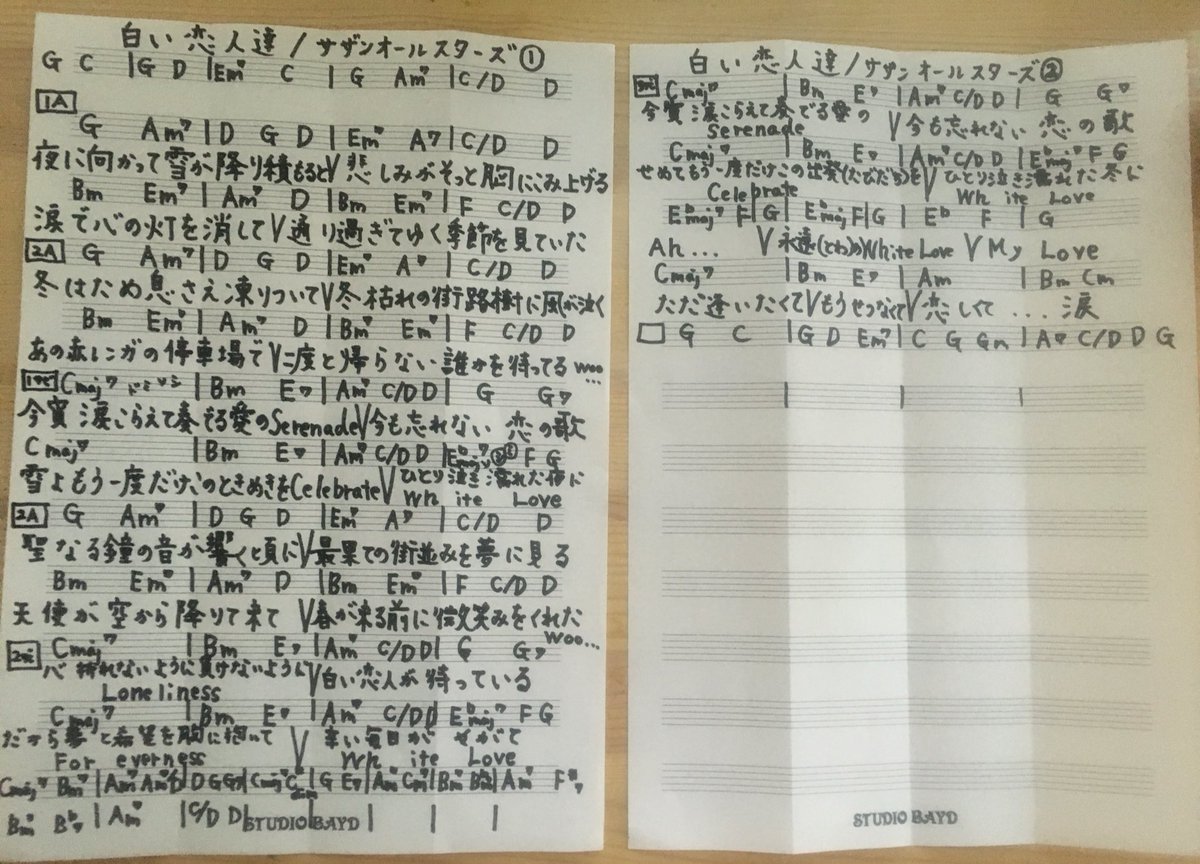 白い恋人達/サザンオールスターズ①
G C |G D |Em7 C | G Am7 |C/D D
1A
G Am7 | D G D | Em7 A7 | C/D D
夜に向かって雪が降り積もると∨悲しみがそっと胸にこみ上げる
Bm Em7 | Am7 D | Bm Em7 | F C/D D
涙で心の灯を消して∨通り過ぎてゆく季節を見ていた
2A G Am7 | D G D | Em7 A7 | C/D D
冬はため息さえ凍りついて∨冬枯れの街路樹に風が泣く
Bm Em7 | Am7 D | Bm7 Em7 | F C/D D
あの赤レンガの停車場で∨二度と帰らない誰かを待ってる woo...
1サビ Cmaj7 ドミソシ | Bm E7 | Am7 C/D D | G G7
今宵 涙こらえて奏でる愛のSerenade∨今も忘れない 恋の歌
Cmaj7 | Bm E7 | Am7 C/D D | E♭maj7 F G
雪よもう一度だけこのときめきをCelebrate∨ひとり泣き濡れた夜に
Wh ite Love
2A G Am7 | D G D | Em7 A7 | C/D D
聖なる鐘の音が響く頃に∨最果ての街並みを夢に見る
Bm Em7 | Am7 D | Bm Em7 | F C/D D
天使が空から降りて来て ∨春が来る前に微笑みをくれた
woo...
2サビ Cmaj7 | Bm E7 | Am7 C/D D | G G7
心 折れないように負けないように∨白い恋人が待っている
Loneliness
Cmaj7 | Bm E7 | Am7 C/D D | E♭maj7 F G
だから夢と希望を胸に抱いて ∨ 辛い毎日が やがて
For everness Wh ite Love
Cmaj7 Bm7 | Am7 | D G G7 | Cmaj7 | G E7 | Am7 Cm7 | Bm7 | Am7
Bm7 B♭7 | Am7 | C/D D | | |
STUDIO BAYD
白い恋人達/サザンオールスターズ②
Cmaj7 | Bm E7 | Am7 C/D D | G G7
今宵 涙こらえて奏でる愛の ∨今も忘れない 恋の歌
Serenade
Cmaj7 | Bm E7 | Am7 C/D D | E♭maj7 F G
せめてもう一度だけこの出発(たびだち)を∨ひとり泣き濡れた冬に
Celebrate Wh ite Love
E♭maj7 F | G | E♭maj7 F | G | E♭ F | G
Ah... ∨永遠(とわ)のWhite Love ∨My Love
Cmaj7 | Bm E7 | Am | Bm Cm
ただ逢いたくて∨もうせつなくて∨恋しくて ... 涙
G C | G D Em7 | C G Gm | A7 C/D D G
STUDIO BAYD